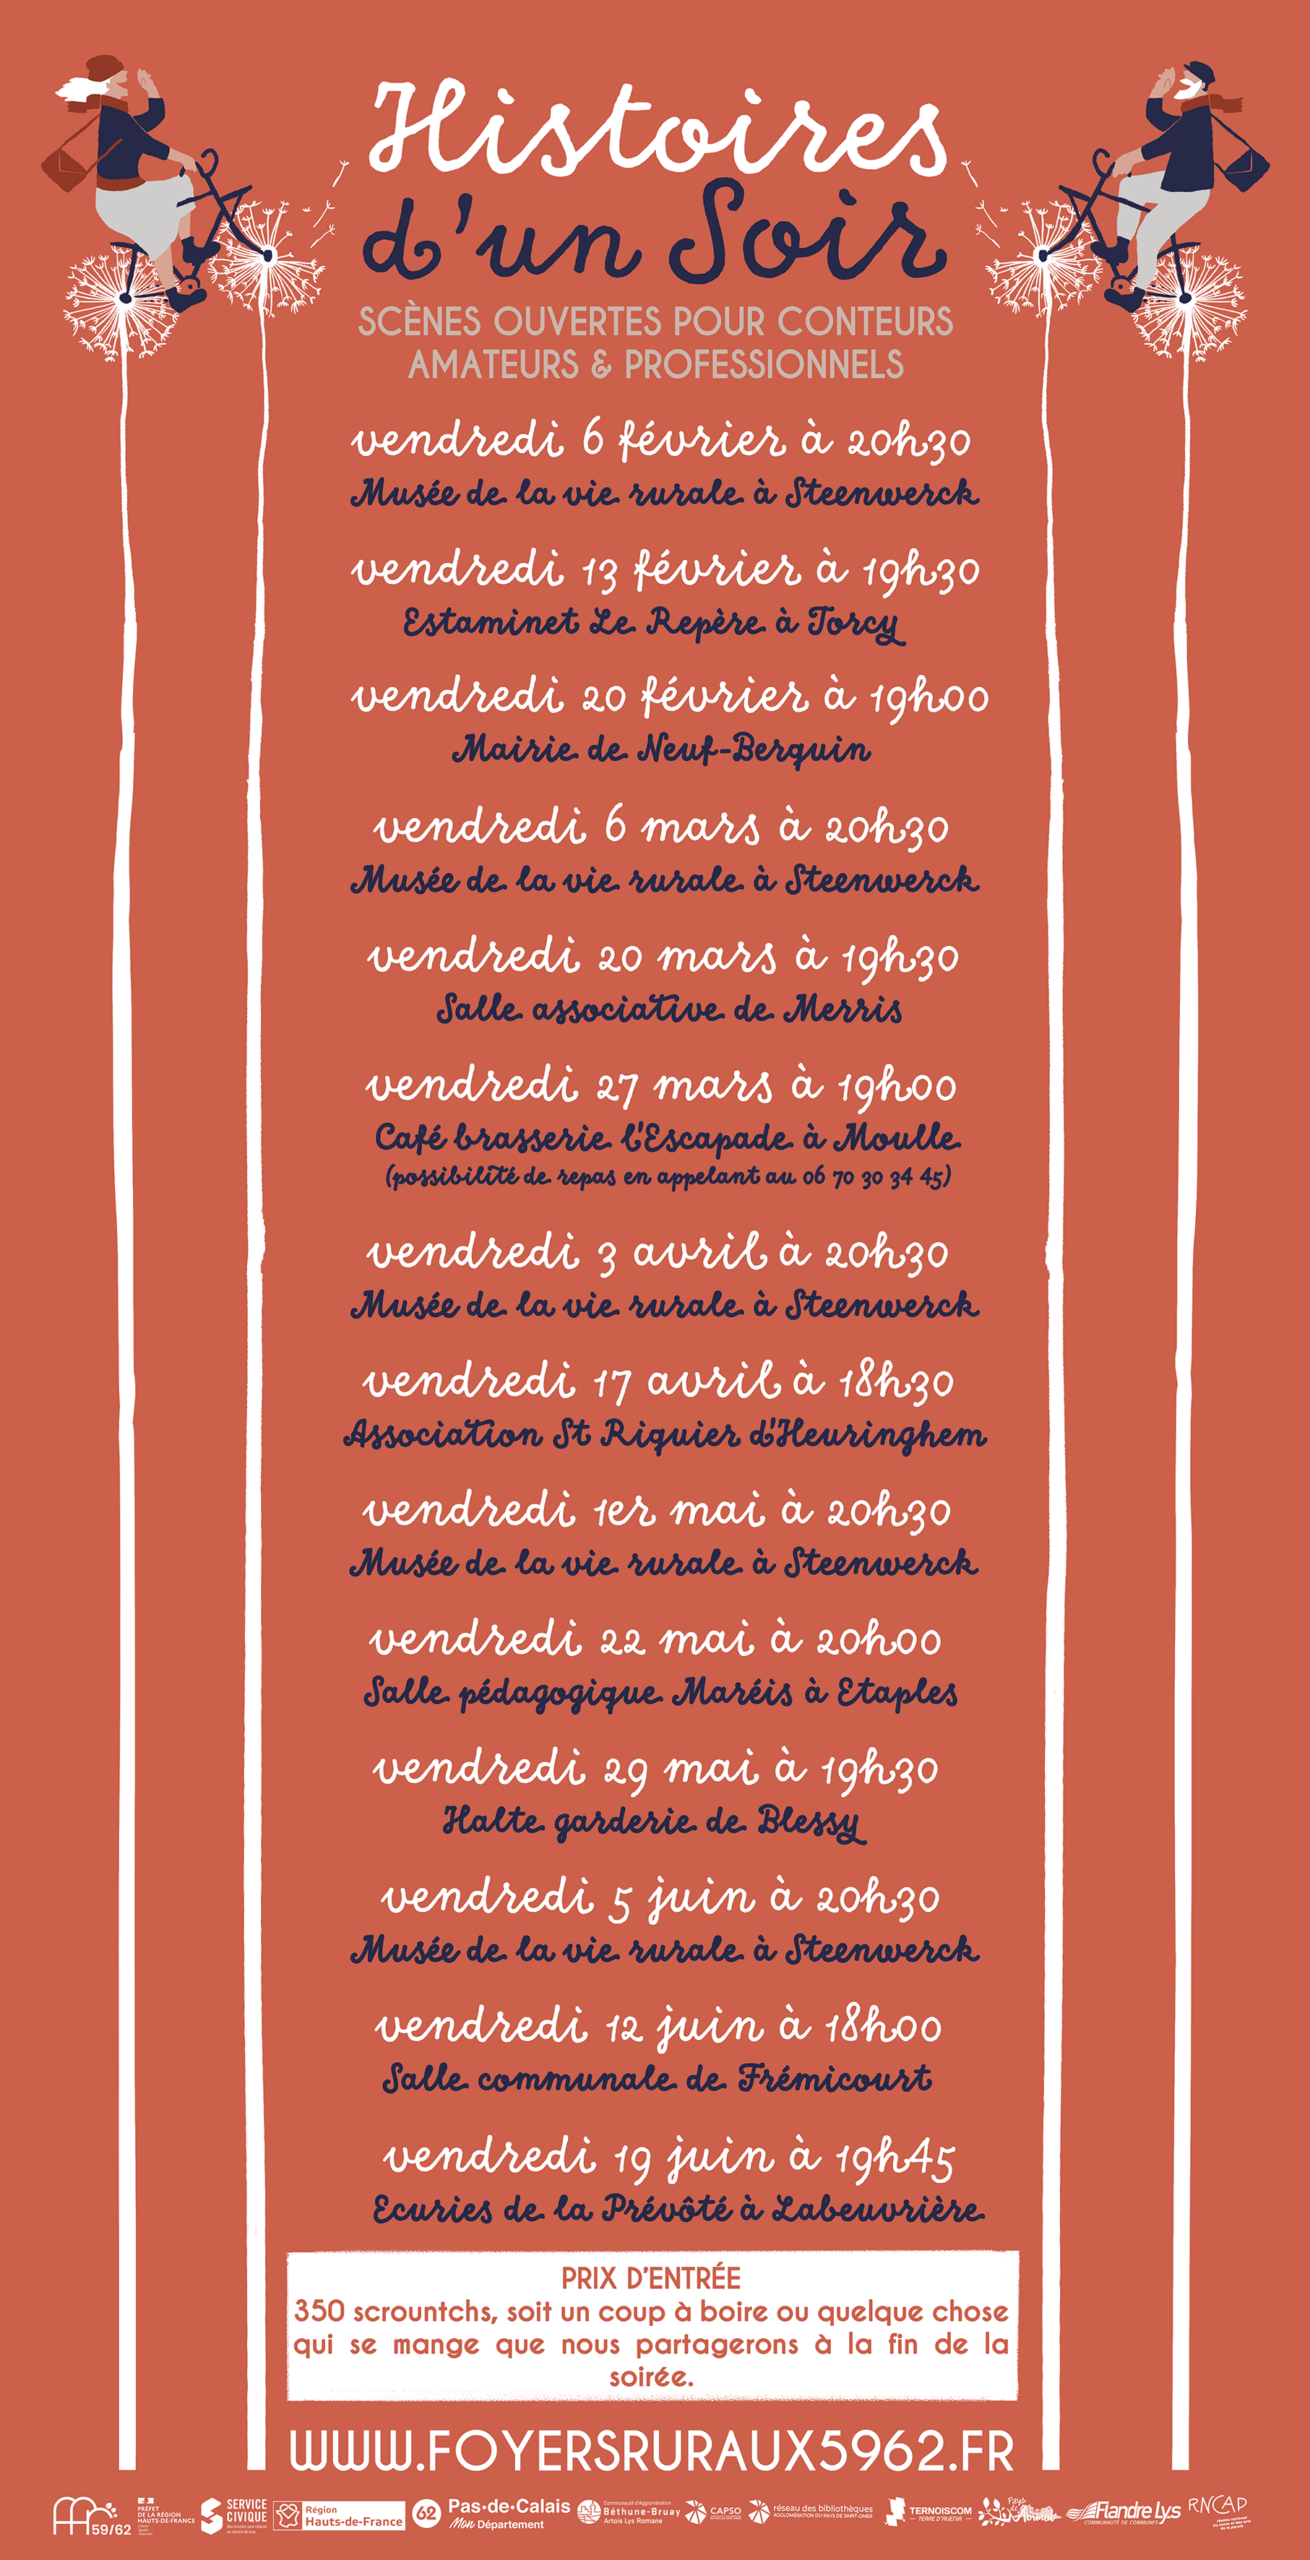 Histoires
d'un Soir
SCÈNES OUVERTES POUR CONTEURS
AMATEURS & PROFESSIONNELS
vendredi 6 février à 20h30
Musée de la vie rurale à Steenwerck
vendredi 13 février à 19h30
Estaminet Le Repère à Torcy
vendredi 20 février à 19h00
Mairie de Neuf-Berquin
vendredi 6 mars à 20h30
Musée de la vie rurale à Steenwerck
vendredi 20 mars à 19h30
Salle associative de Merris
vendredi 27 mars à 19h00
Café brasserie l'Escapade à Moulle
(possibilité de repas en appelant au 06 70 30 34 45)
vendredi 3 avril à 20h30
Musée de la vie rurale à Steenwerck
vendredi 17 avril à 18h30
Association St Riquier d'Heuringhem
vendredi 1er mai à 20h30
Musée de la vie rurale à Steenwerck
vendredi 22 mai à 20h00
Salle pédagogique Maréis à Etaples
vendredi 29 mai à 19h30
Halte garderie de Blessy
vendredi 5 juin à 20h30
Musée de la vie rurale à Steenwerck
vendredi 12 juin à 18h00
Salle communale de Frémicourt
vendredi 19 juin à 19h45
Ecuries de la Prévôté à Labeuvrière
PRIX D'ENTRÉE
350 scrountchs, soit un coup à boire ou quelque chose
qui se mange que nous partagerons à la fin de la
soirée.
WWW.FOYERSRURAUX5962.FR
59/62
PRÉFET
DE LA RÉGION
HAUTS-DE-FRANCE
SERVICE
CIVIQUE
Région
Hauts-de-France
62
Pas-de-Calais
Mon Département
Communauté d'Agglomération
Béthune-Bruay
Artois Lys Romane
CAPSO
réseau des bibliothèques
AGGLOMÉRATION DU PAYS DE SAINT-OMER
TERNOISCOM
TERRE D'AVENIR
Pays
Flandre Lys
COMMUNAUTÉ DE COMMUNES
RNCAP